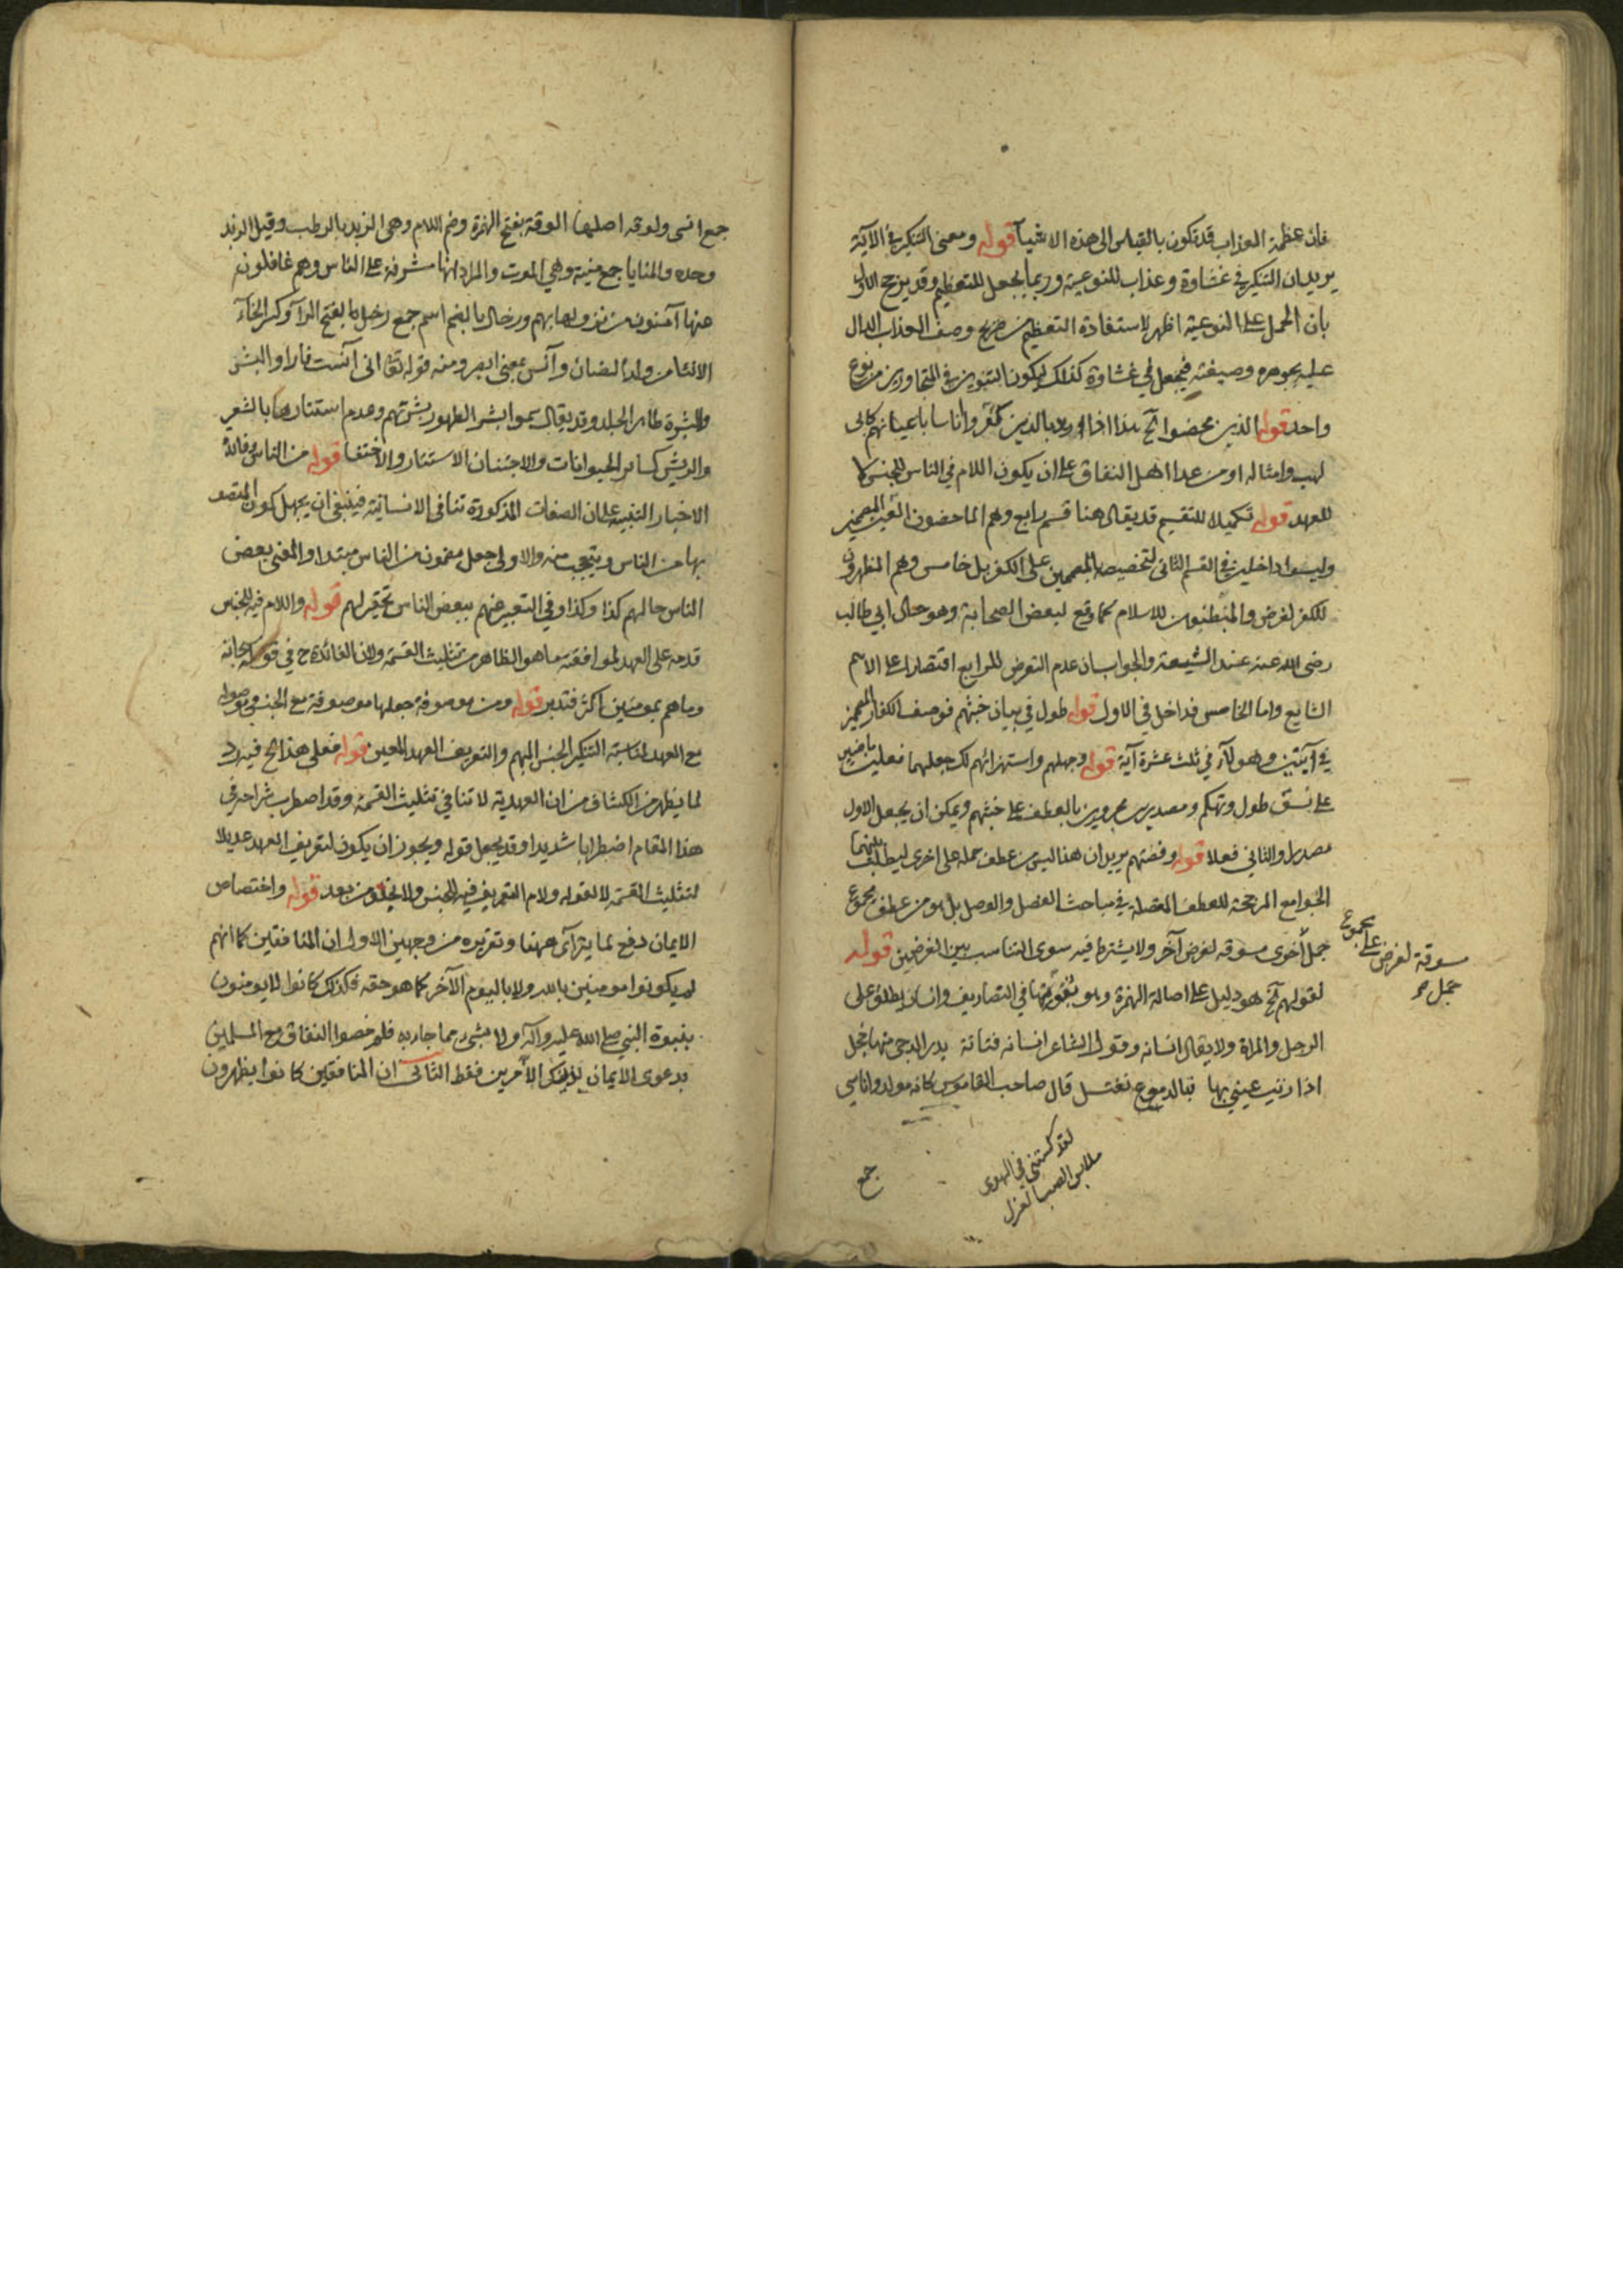 فان عظمة العذاب قد تكون بالقياس الى هذه الاشيآ قوله ومعنى التنكير في الآية
يريد ان التنكير في غشاوة وعذاب للنوعية وربما يجعل للتعظيم وقد يرجح الاول
بان الحمل على النوعية اظهر لاستفادة التعظيم من صريح وصف العذاب الدال
عليه بجوهره وصيغته فيجعل في غشاوة كذلك ليكون التنوين في المتجاورين من نوع
واحد قوله الذين محضوا آلخ هذا اذا اريد بالذين كفروا اناسا باعيانهم كابى
لهب وامثاله او من عدا اهل النفاق على ان يكون اللام في الناس للجنس لا
للعهد قوله تكميلا للتقسيم قد يقال هنا قسم رابع وهم الماحضون الغير المصممين
وليسوا داخلين في القسم الثانى لتخصيصه بالمصممين على الكفر بل خامس وهم المظهرون
للكفر لغرض والمبطنون للاسلام كما وقع لبعض الصحابة وهو حال ابي طالب
رضى الله عنه عند الشيعة والجواب ان عدم التعرض للرابع اقتصارا على الاهم
الشايع واما الخامس فداخل في الاول قوله طول في بيان خبثهم فوصف الكفار المصممين
في آيتين وهولآء في ثلث عشرة آية قوله وجهلهم واستهزائهم لك جعلهما فعلين ماضيين
على نسق طول وتهكم ومصدرين مجرورين بالعطف على خبثهم ويمكن ان يجعل الاول
مصدرا والثاني فعلا قوله وقصتهم يريد ان هنا ليس من عطف جملة على اخرى ليطلب بينهما
الجوامع المرجحة للعطف المفصلة في مباحث الفصل والوصل بل هو من عطف مجموع
جمل أخرى مسوقه لغرض آخر ولا يشترط فيه سوى التناسب بين الغرضين قوله
مجموع
مسوقة لغرض على
جمل صح
لقولهم آلخ هو دليل على اصالة الهمزة وهو ثبوتها في التصاريف وانسان يطلق على
الرجل والمراة ولا يقال انسانه وقول الشاعر انسانه فتانة بدر الدجى منها خجل
اذا زنت عيني بها فبالدموع تغتسل قال صاحب القاموس كانه مولد واناسي
لقد كستني في الهوى
ملابس الصب الغزل
جمع
جمع انسى ولوقه اصلها الوقة بفتح الهمزة وضم اللام وهى الزبد بالرطب وقيل الزبد
وحده والمنايا جمع منية وهي الموت والمراد انها مشرفة على الناس وهم غافلون
عنها آمنون من نزولها بهم ورخال بالضم اسم جمع رخل بالفتح الرآ وكسر الخآء
الانثى من ولد الضان وآنس بمعنى ابصر ومنه قوله تعا انى آنست نارا والبشر
والبشرة ظاهر الجلد وقد يقال سموا بشرا لظهور بشرتهم وعدم استتارها بالشعر
والريش كساير الحيوانات والاجتنان الاستتار والاختفا قوله من الناس وفائدة
الاخبار التنبيه على ان الصفات المذكورة تنافى الانسانية فينبغى ان يجهل كون المتصف
بها من الناس ويتعجب منه والاولى جعل مضمون من الناس مبتدا والمعنى بعض
الناس حالهم كذا وكذا وفي التعبير عنهم ببعض الناس تحقير لهم قوله واللام فيه للجنس
قدمه على العهد لموافقته ما هو الظاهر من تثليث القسمة ولان الفائدة ح في قوله سبحانه
وما هم بمومنين اكثر فتدبر قوله ومن موصوفة جعلها موصوفة مع الجنس وموصولة
مع العهد لمناسبة التنكير الجنس المبهم والتعريف العهد المعين قوله فعلى هذا آلخ فيه رد
لما يظهر من الكشاف من ان العهدية لا تنافي تثليث القسمة وقد اضطرب شراحه في
هذا المقام اضطرابا شديدا وقد يجعل قوله ويجوز ان يكون لتعريف العهد عديلا
لتثليث القسمة لا لقوله ولام التعريف فيه للجنس ولا يخلو من بعد قوله واختصاص
الايمان دفع لما يترآى ههنا وتقريره من وجهين الاول ان المنافقين كما انهم
لم يكونوا مومنين بالله ولا باليوم الآخر كما هو حقه فكذلك كانوا لا يومنون
بنبوة النبي صلى الله عليه وآله ولا بشى مما جاء به فلم خصوا النفاق مع المسلمين
بدعوى الايمان بذينك الامرين فقط الثانى ان المنافقين كانوا يظهرون